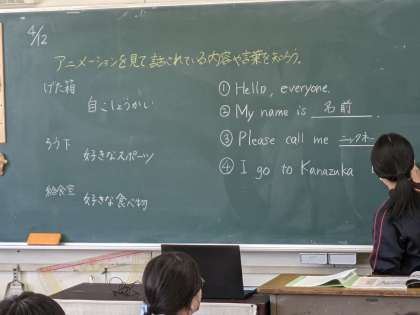 4/12
アニメーションを見て話されている内容や言葉を知ろう。
げた箱
自こしょうかい
ろう下
好きなスポーツ
給食室
好きな食べ物
① Hello, everyone.
② My name is 名前.
③ Please call me ニックネー
④ I go to Kanazuka